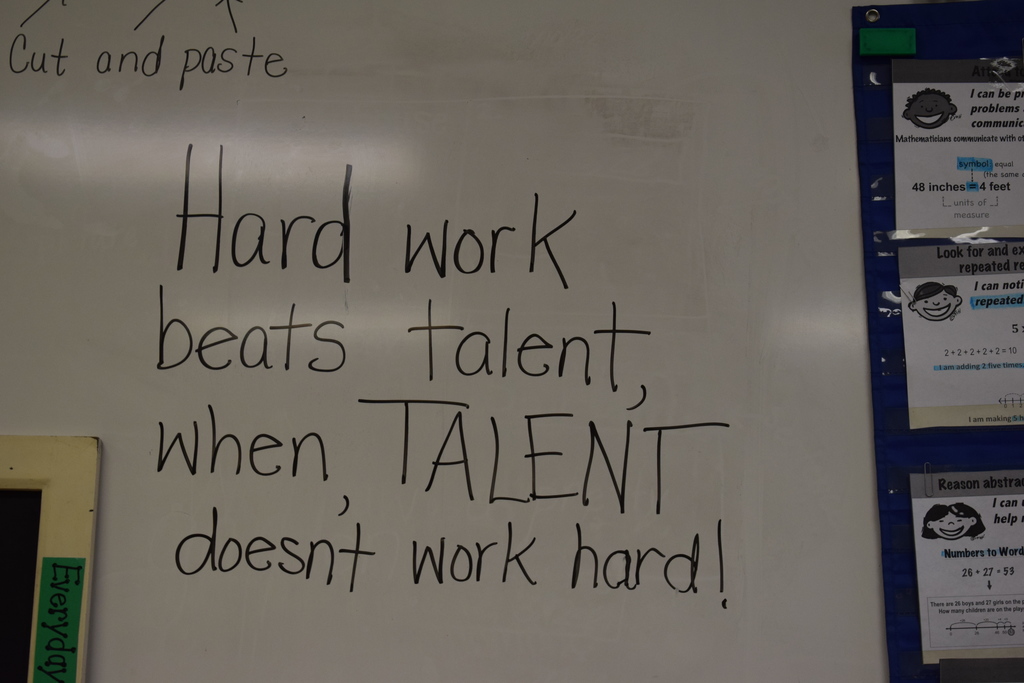 Cut and paste
Hard work
beats talent,
when, TALENT
doesn't work hard!
Everyday
I can be
problems
Mathematicians communicate with
symbol: equal
(the same
48 inches = 4 feet
units of
measure
Look for and
repeated
I can
repeated
5
2+2+2+2+2=10
I am adding 2 five times,
I am making 5
Reason
I can
help
Numbers to
26 + 27 = 53
There are 26 boys and 27 girls on the
How many children are on the